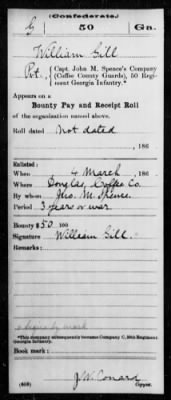 (Confederate.)
G 50 Ga.
William Gill
Pvt., Capt. John M. Spence's Company
(Coffee County Guards), 50 Regi-
ment Georgia Infantry.*
Appears on a
Bounty Pay and Receipt Roll
of the organization named above.
Roll dated Not dated
, 186
Enlisted:
When 4 March , 186
Where Douglas, Coffee Co.
By whom Jno. M. Spence
Period 3 years or war
Bounty $50 100
Signature William Gill.
Remarks:
*This company subsequently became Company C, 50th Regiment
Georgia Infantry.
Book mark:
J. W. Conard
Copyist.